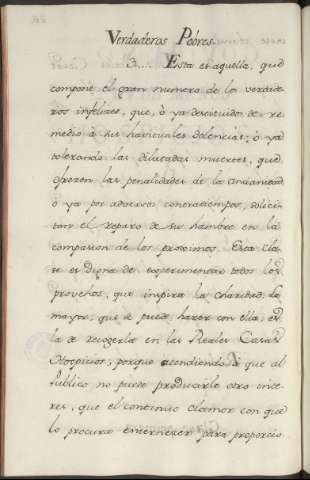 Verdaderos Pobres.
3.... Esta es aquella, que
compone el gran numero de los verdade
ros infelices, que, ò ya destituidos de re
medio à sus havituales dolencias; ò ya
tolerando las dilatadas muertes, que
ofrecen las penalidades de la ancianidad
ò ya por adversos contratiempos, solici
tan el reparo de su hambre en la
compasion de los proximos. Esta Cla
se es Digna de experimentar todos los
provechos, que inspira la charidad: la
mayor, que se puede hazer con ella, es
la de recogerla en las Reales Casas
Hospicios; porque atendiendo à que al
Publico no puede producirle otro inte
res, que el continuo clamor con que
lo procura enternezer para proporcio